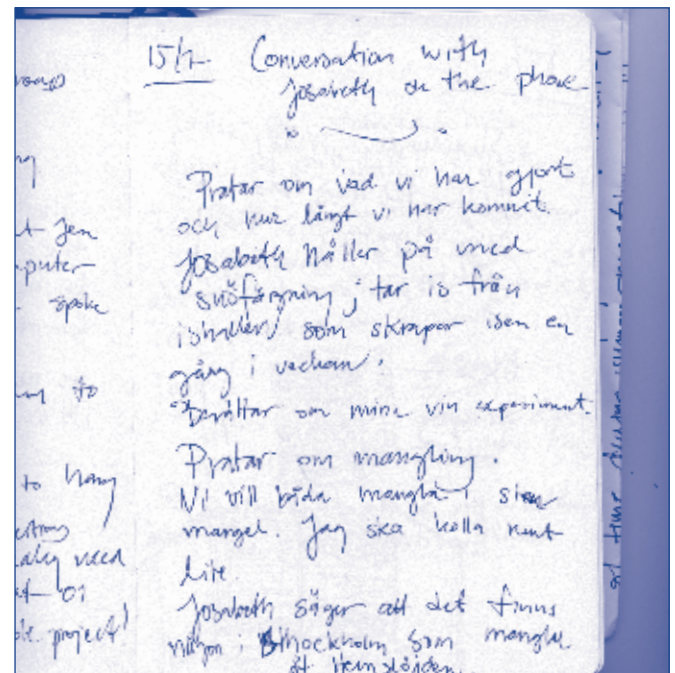 15/7 Conversation with
Josabeth on the phone
Pratar om vad vi har gjort
och hur långt vi har kommit.
Josabeth håller på med
snöfärgning, tar is från
ishallen som skrapar isen en
gång i veckan.
Berättar om mina vin experiment.
Pratar om mangling.
Vi vill båda mangla i sten
mangel. Jag ska kolla runt
lite.
Josabeth säger att det finns
någon i Sthockholm som manglar
åt Hemslöjden.
puter
spoke
to
to hang
need
project!